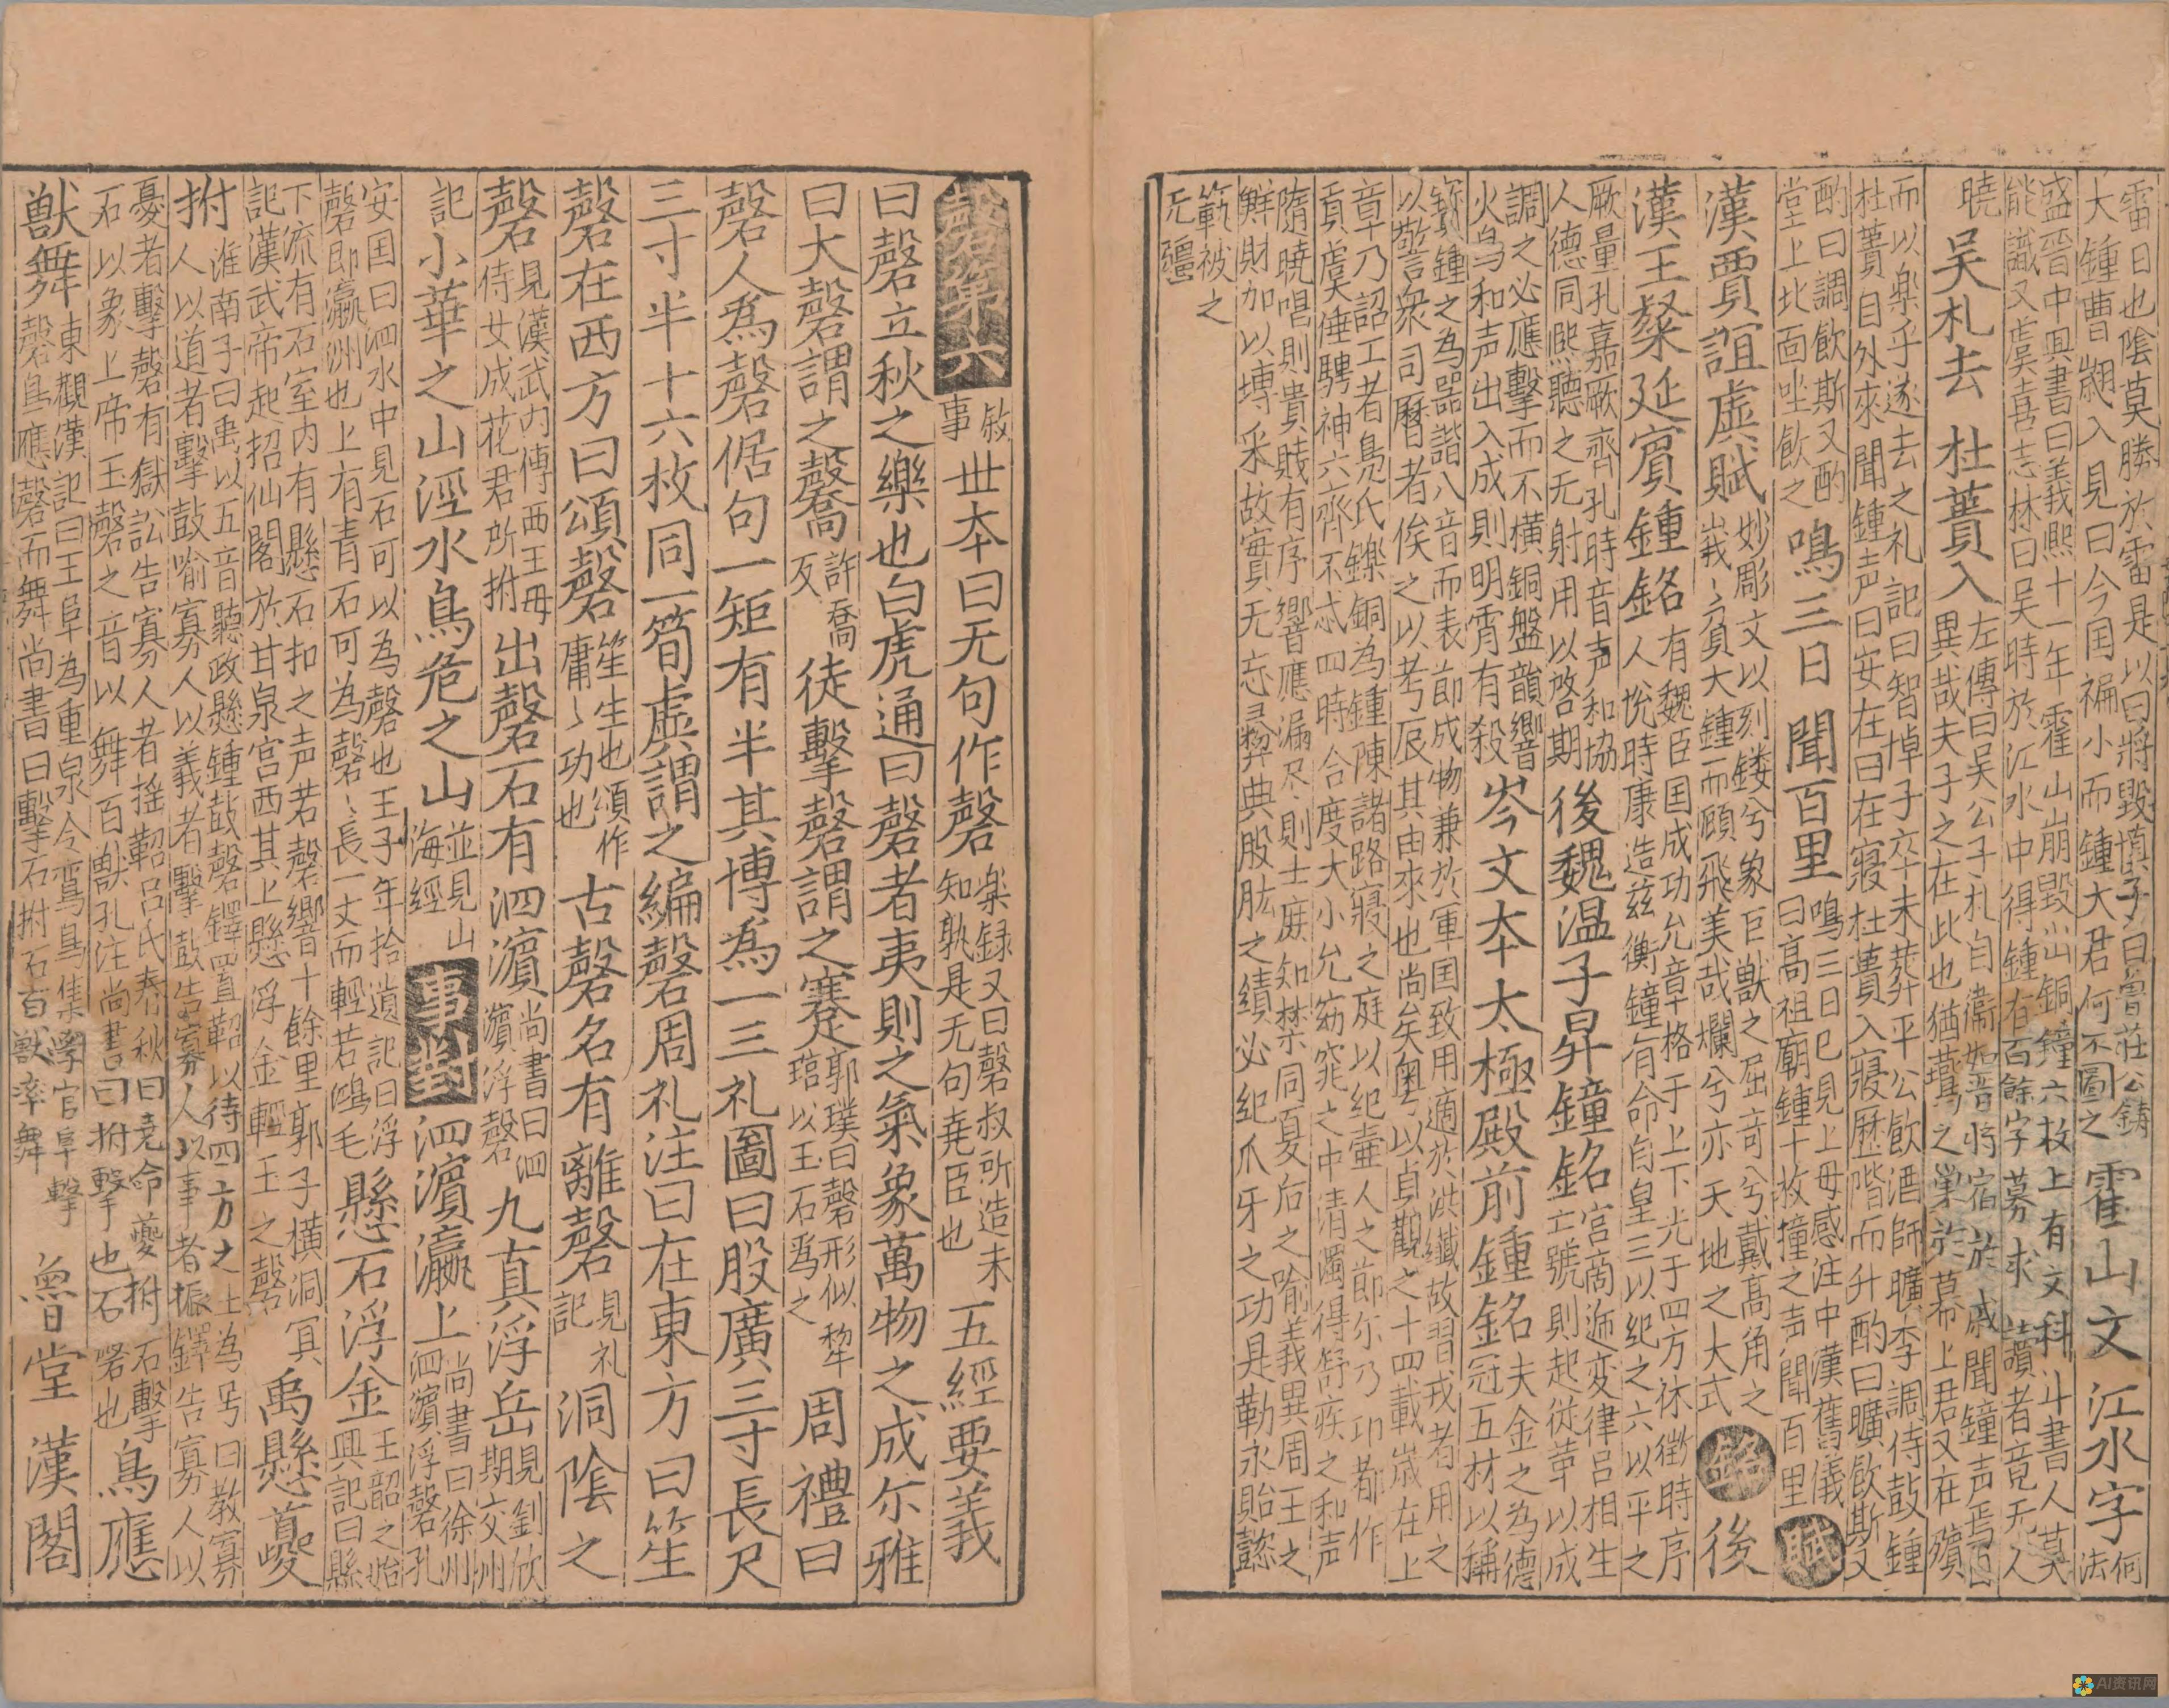 雷日也陰莫勝於雷是以曰將毀慎子曰魯莊公鑄
大鍾曹翽入見曰今国褊小而鍾大君何不圖之
霍山文 江水字 何法
盛晉中興書曰義熙十一年霍山崩毀山銅鐘六枚上有文科斗書人莫
能識又虞喜志林曰吳時於江水中得鍾有百餘字募求讀者竟无人
曉 吳札去 杜蕢入
左傳曰吳公子札自衞如晉將宿於戚聞鐘声焉曰
異哉夫子之在此也猶鷰之巢於幕上君又在殯
而以樂乎遂去之礼記曰智悼子卒未葬平公飲酒師曠李調侍鼓鍾
杜蕢自外來聞鍾声曰安在曰在寢杜蕢入寢歷階而升酌曰曠飲斯又
酌曰調飲斯又酌
堂上北面坐飲之
鳴三日 聞百里
鳴三日已見上毋感注中漢舊儀
曰高祖廟鍾十枚撞之声聞百里
賦
漢賈誼虛賦
妙彫文以刻鏤兮象巨獸之屈奇兮戴高角之
峩〻負大鍾而顧飛美哉爛兮亦天地之大式
銘 後
漢王粲延賓鍾銘
有魏臣国成功允章格于上下光于四方休徵時序
人恱時康造茲衡鐘有命自皇三以紀之六以平之
厥量孔嘉厥齊孔時音声和協
人德同熙聽之无射用以啓期
後魏温子昇鐘銘
宮商遞变律呂相生
工號則起從革以成
調之必應擊而不橫銅盤韻響
火烏和声出入成則明霄有殺
岑文夲太極殿前鍾銘
夫金之為德
冠五材以稱
寳鍾之為器諧八音而表節成物兼於軍国致用適於洪纖故習戎者用之
以警衆司曆者俟之以考辰其由來也尚矣粤以貞觀之十四載歲在上
章乃詔工者鳧氏鑠銅為鍾陳諸路寢之庭以紀壷人之節尔乃卭都作
貢虞倕騁神六齊不忒四時合度大小允窈窕之中清濁得舒疾之和声
隋曉唱則貴賎有序響應漏尽則士庻知禁同夏后之喻義異周王之
鮮財加以塼采故實无忘彛典股肱之績必紀爪牙之功具勒永貽懿
範被之
无疆
磬第六
敘事
丗夲曰无句作磬
楽録又曰磬叔所造未
知孰是无句堯臣也
五經要義
曰磬立秋之樂也白虎通曰磬者夷則之氣象萬物之成尓雅
曰大磬謂之毊
許喬
反
徒擊磬謂之寋
郭璞曰磬形似犂
琯以玉石爲之
周禮曰
磬人爲磬倨句一矩有半其博爲一三礼圖曰股廣三寸長尺
三寸半十六枚同一筍虡謂之編磬周礼注曰在東方曰笙
磬在西方曰頌磬
笙生也頌作
庸〻功也
古磬名有離磬
見礼
記
洞陰之
磬
見漢武内傳西王母
侍女成花君所拊
出磬石有泗濵
尚書曰泗
濵浮磬
九真浮岳
見劉欣
期交州
記
小華之山涇水鳥危之山
並見山
海經
事對
泗濵 瀛上
尚書曰徐州
泗濵浮磬孔
安国曰泗水中見石可以為磬也王子年拾遺記曰浮
磬即瀛洲也上有青石可為磬〻長一丈而輕若鴻毛
懸石 浮金
王韶之始
興記曰縣
下流有石室内有懸石扣之声若磬響十餘里郭子橫洞冥
記漢武帝起招仙閣於甘泉宮西其上懸浮金輕玉之磬
禹懸 夔
拊
淮南子曰禹以五音聽政懸鍾鼓磬鐸置鞀以待四方之士為号曰教寡
人以道者擊鼓喻寡人以義者擊鼓告寡人以事者振鐸告寡人以
憂者擊磬有獄訟告寡人者揺鞀呂氏春秋曰堯命夔拊石擊
石以象上帝玉磬之音以舞百獸孔注尚書曰拊擊也石磬也
鳥應
獸舞
東觀漢記曰王阜為重泉令鸞鳥集學官阜擊
磬鳥應磬而舞尚書曰擊石拊石百獸率舞
魯堂 漢閣
AI资讯网